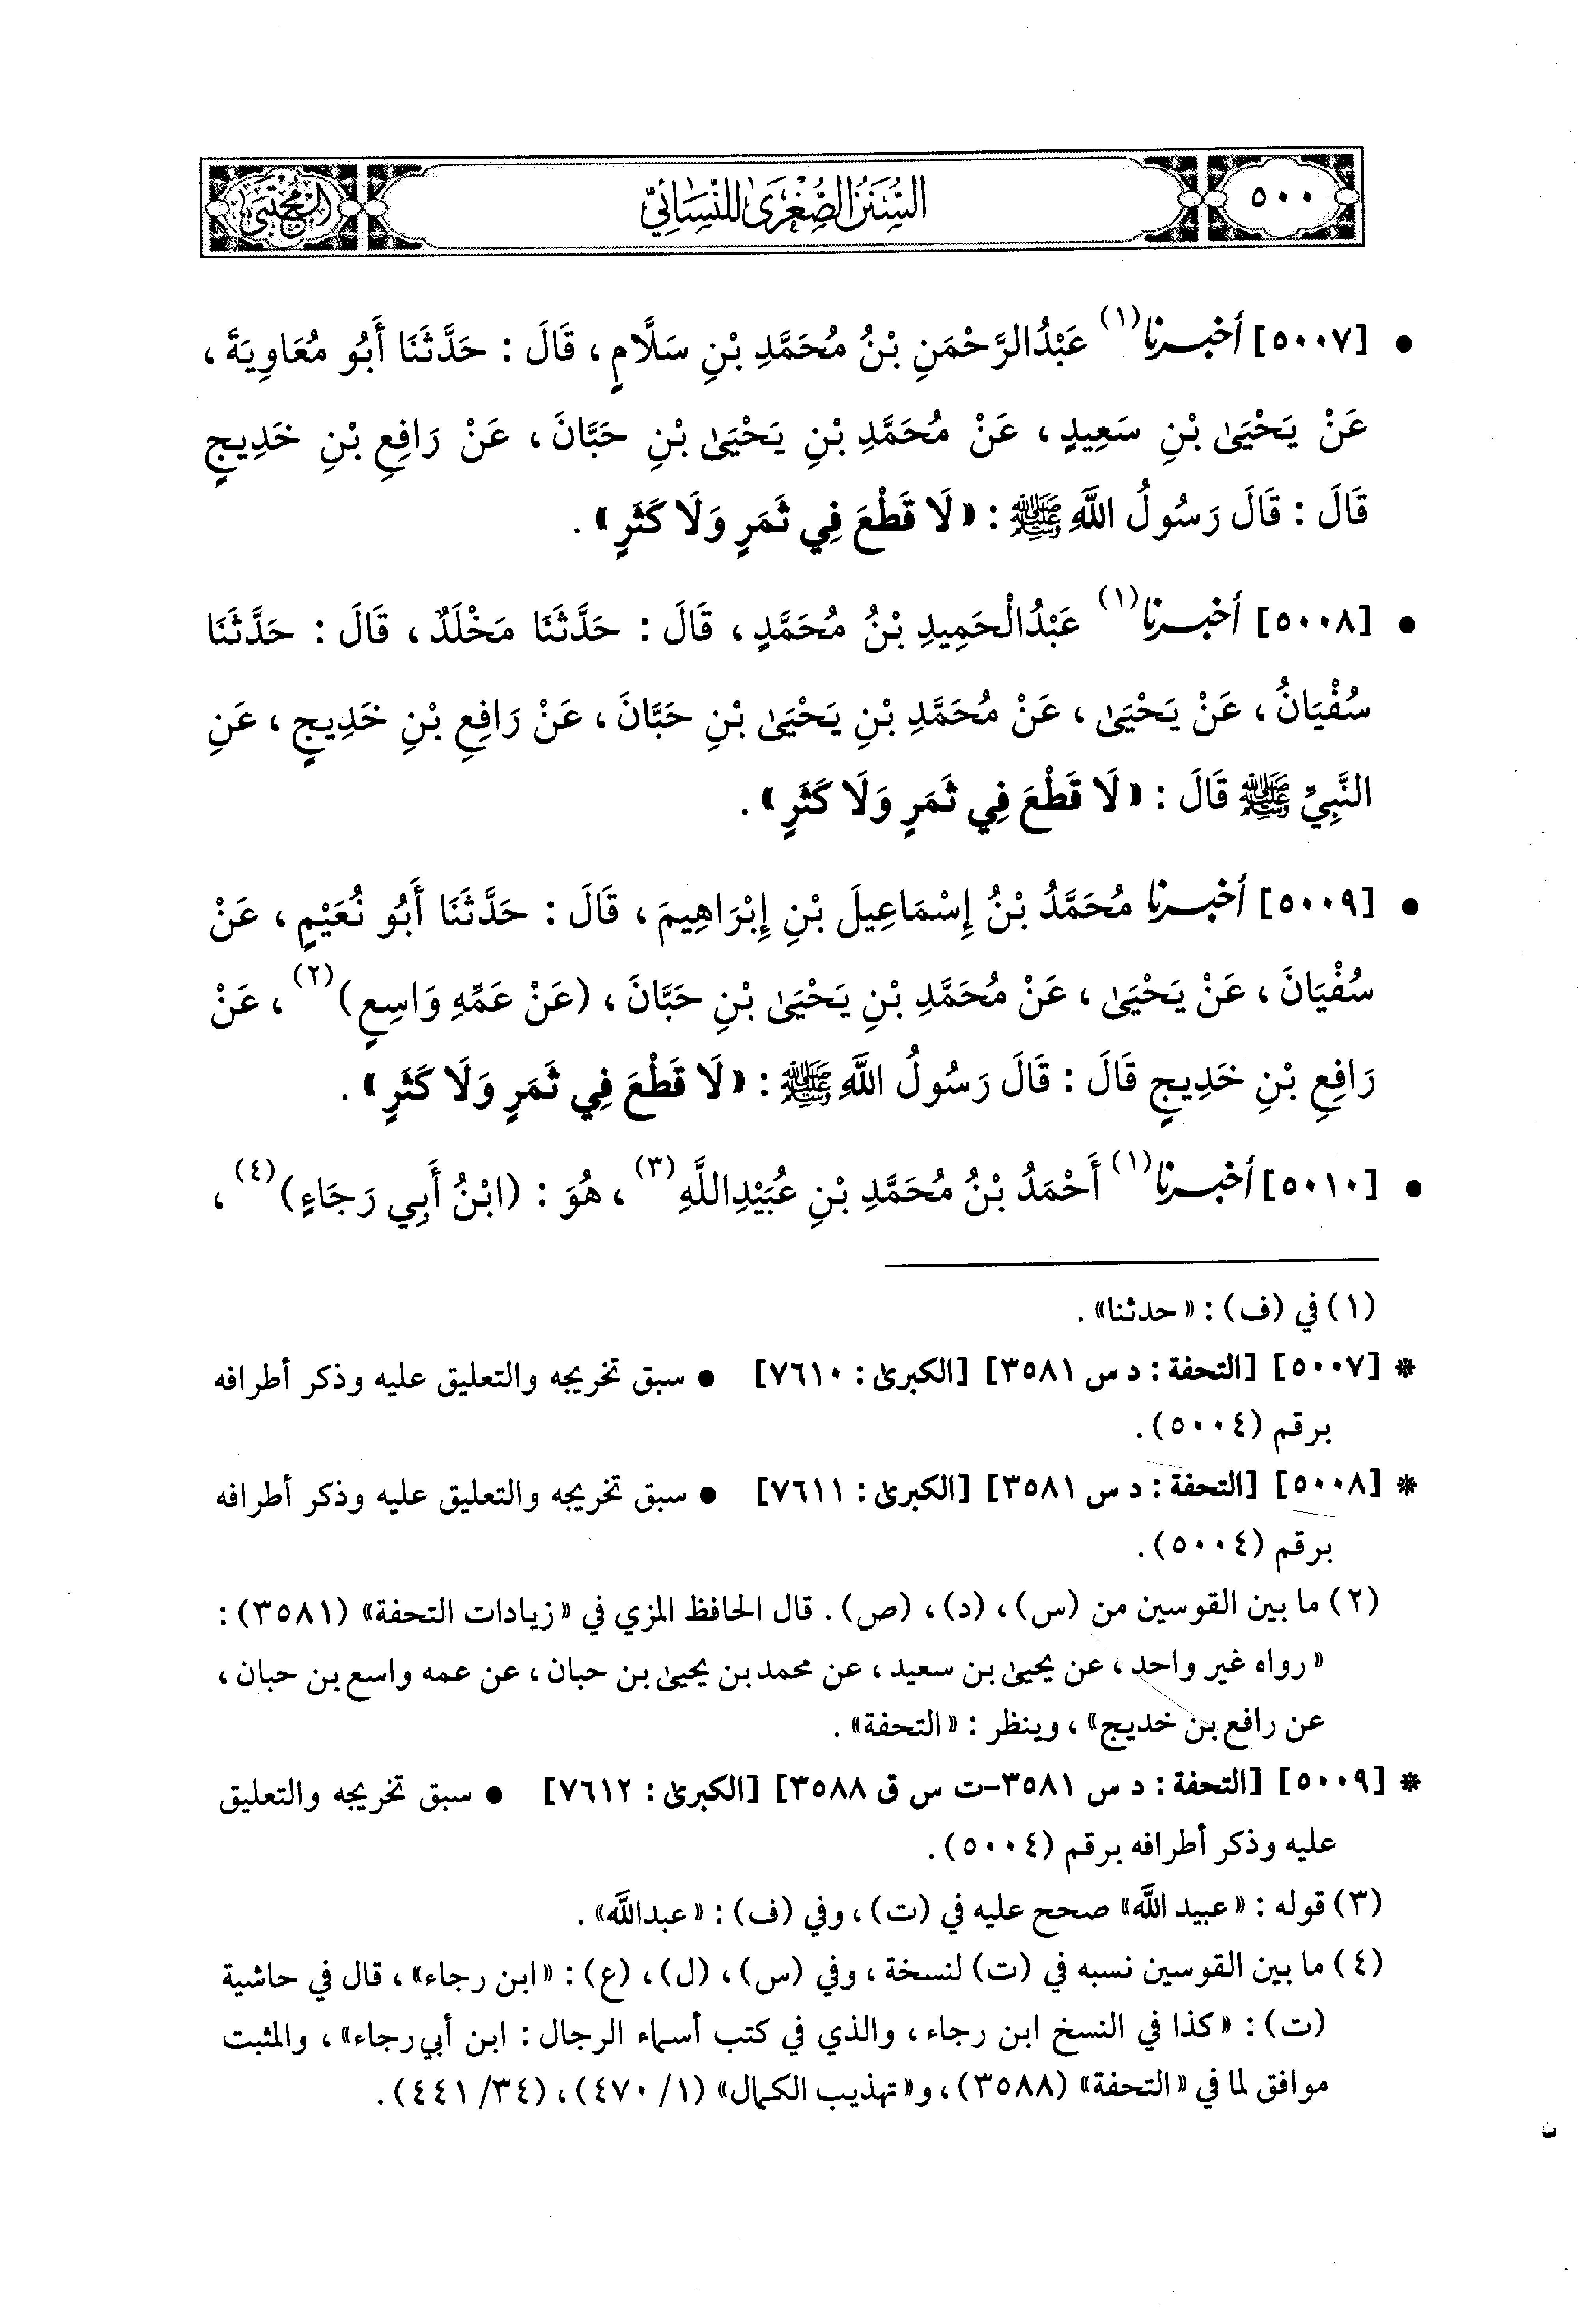 ٥٠٠
السُّنَنُ الصُّغْرَىٰ لِلنَّسَائِيِّ
المجتبى
• [٥٠٠٧] أَخْبَرَنَا(١) عَبْدُالرَّحْمَنِ بْنُ مُحَمَّدِ بْنِ سَلَّامٍ، قَالَ: حَدَّثَنَا أَبُو مُعَاوِيَةَ،
عَنْ يَحْيَىٰ بْنِ سَعِيدٍ، عَنْ مُحَمَّدِ بْنِ يَحْيَىٰ بْنِ حَبَّانَ، عَنْ رَافِعِ بْنِ خَدِيجٍ
قَالَ: قَالَ رَسُولُ اللَّهِ ﷺ: «لَا قَطْعَ فِي ثَمَرٍ وَلَا كَثَرٍ».
• [٥٠٠٨] أَخْبَرَنَا(١) عَبْدُالْحَمِيدِ بْنُ مُحَمَّدٍ، قَالَ: حَدَّثَنَا مَخْلَدٌ، قَالَ: حَدَّثَنَا
سُفْيَانُ، عَنْ يَحْيَىٰ، عَنْ مُحَمَّدِ بْنِ يَحْيَىٰ بْنِ حَبَّانَ، عَنْ رَافِعِ بْنِ خَدِيجٍ، عَنِ
النَّبِيِّ ﷺ قَالَ: «لَا قَطْعَ فِي ثَمَرٍ وَلَا كَثَرٍ».
• [٥٠٠٩] أَخْبَرَنَا مُحَمَّدُ بْنُ إِسْمَاعِيلَ بْنِ إِبْرَاهِيمَ، قَالَ: حَدَّثَنَا أَبُو نُعَيْمٍ، عَنْ
سُفْيَانَ، عَنْ يَحْيَىٰ، عَنْ مُحَمَّدِ بْنِ يَحْيَىٰ بْنِ حَبَّانَ، (عَنْ عَمِّهِ وَاسِعٍ)(٢)، عَنْ
رَافِعِ بْنِ خَدِيجٍ قَالَ: قَالَ رَسُولُ اللَّهِ ﷺ: «لَا قَطْعَ فِي ثَمَرٍ وَلَا كَثَرٍ».
• [٥٠١٠] أَخْبَرَنَا(١) أَحْمَدُ بْنُ مُحَمَّدِ بْنِ عُبَيْدِاللَّهِ(٣)، هُوَ: (ابْنُ أَبِي رَجَاءٍ)(٤)،
(١) في (ف): «حدثنا».
* [٥٠٠٧] [التحفة: د س ٣٥٨١] [الكبرىٰ: ٧٦١٠] • سبق تخريجه والتعليق عليه وذكر أطرافه
برقم (٥٠٠٤).
* [٥٠٠٨] [التحفة: د س ٣٥٨١] [الكبرىٰ: ٧٦١١] • سبق تخريجه والتعليق عليه وذكر أطرافه
برقم (٥٠٠٤).
(٢) ما بين القوسين من (س)، (د)، (ص). قال الحافظ المزي في «زيادات التحفة» (٣٥٨١):
«رواه غير واحد، عن يحيىٰ بن سعيد، عن محمد بن يحيىٰ بن حبان، عن عمه واسع بن حبان،
عن رافع بن خديج»، وينظر: «التحفة».
* [٥٠٠٩] [التحفة: د س ٣٥٨١-ت س ق ٣٥٨٨] [الكبرىٰ: ٧٦١٢] • سبق تخريجه والتعليق
عليه وذكر أطرافه برقم (٥٠٠٤).
(٣) قوله: «عبيد اللَّه» صحح عليه في (ت)، وفي (ف): «عبداللَّه».
(٤) ما بين القوسين نسبه في (ت) لنسخة، وفي (س)، (ل)، (ع): «ابن رجاء»، قال في حاشية
(ت): «كذا في النسخ ابن رجاء، والذي في كتب أسماء الرجال: ابن أبي رجاء»، والمثبت
موافق لما في «التحفة» (٣٥٨٨)، و«تهذيب الكمال» (١/ ٤٧٠)، (٣٤/ ٤٤١).
ت